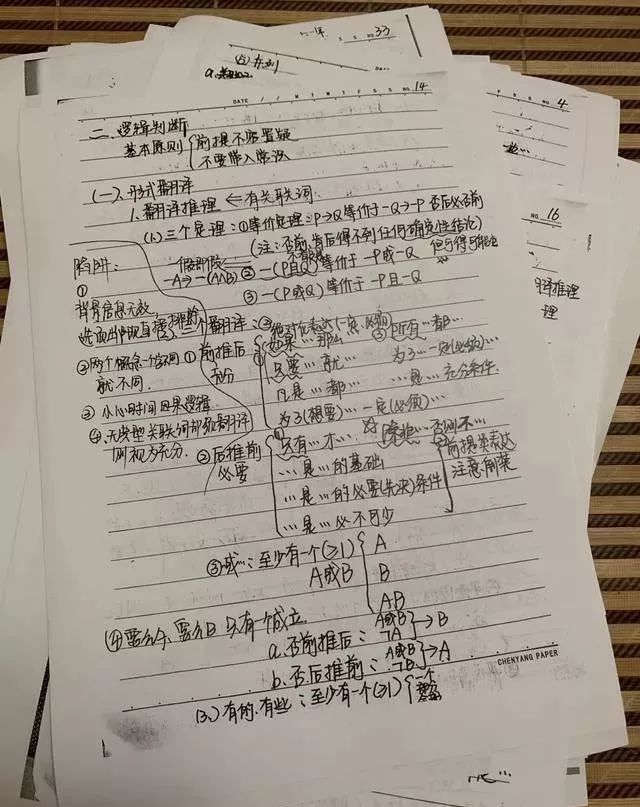 33
(2)并列
DATE / / M T W T F S S NO. 14
NO. 4
NO. 16
二、逻辑判断
基本原则 前提不容置疑
不要带入常识
(一)、形式翻译
1.翻译推理 ⇐ 有关联词
(1)三个定理:①等价定理:P→Q等价于-Q→-P 否后必否前
(注:否前、肯后得不到任何确定性结论)
但可得可能性
假即假
-A→-(A∧B) ②-(P且Q)等价于-P或-Q
③-(P或Q)等价于-P且-Q
陷阱:
①
背景信息无效
②两个概念一字不同
就不同.
③小心时间因果逻辑
④无典型关联词却须翻译
则视为充分.
翻译:
绝对化表达(一定、必须)
①前推后
充分
如果…那么
所有…都…
只要…就…
为了…一定(必须)…
凡是…都…
…是…充分条件.
为了(想要)…一定(必须)…
②后推前
必要
只有…才…
除非…否则不…
…是…的基础
前提类表达
…是…的必要(先决)条件
注意前装
…是…必不可少
③或…:至少有一个(≥1) A
A或B
B
AB
④要么A,要么B 只有一个成立.
a.否前推后: A或B ¬A →B
b.否后推前: A或B ¬B →A
CHENYANG PAPER
(3)、有的.有些:至少有一个(≥1) 一个
理推理
理